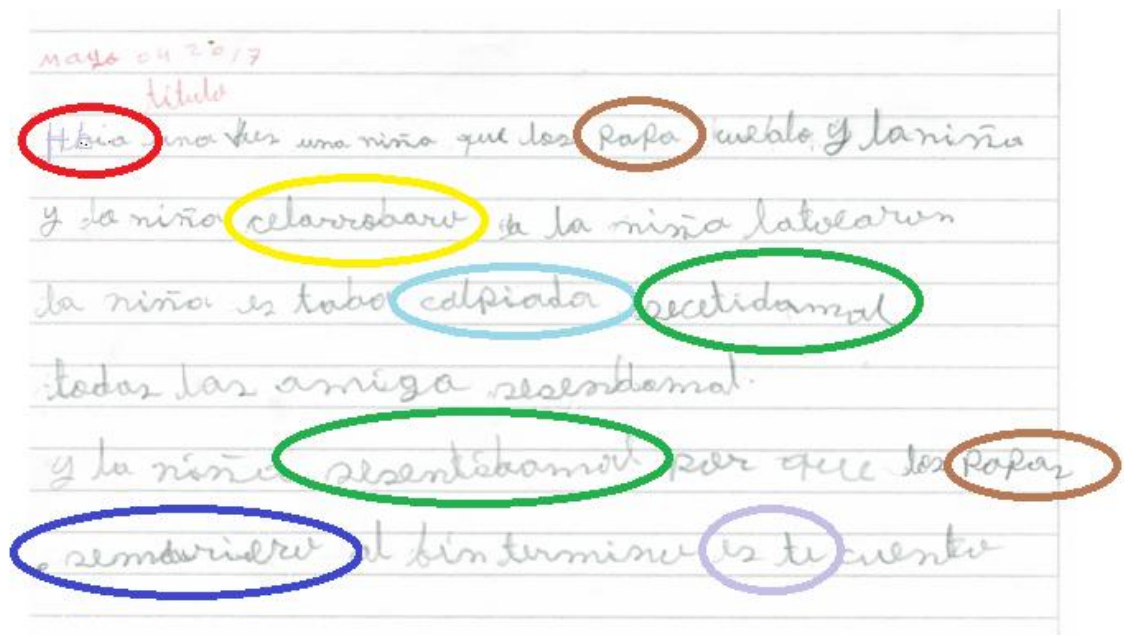 mayo 04 2017
titulo
Hbia una ves una niña que los papa cueblo, y la niña
y la niña celarrobaro a la niña latocaron
la niña es taba colpiada secetidamal
todas las amiga sesendomal.
y la niña sesentibamal por que los papas
semorierо al fin termino es te cuento